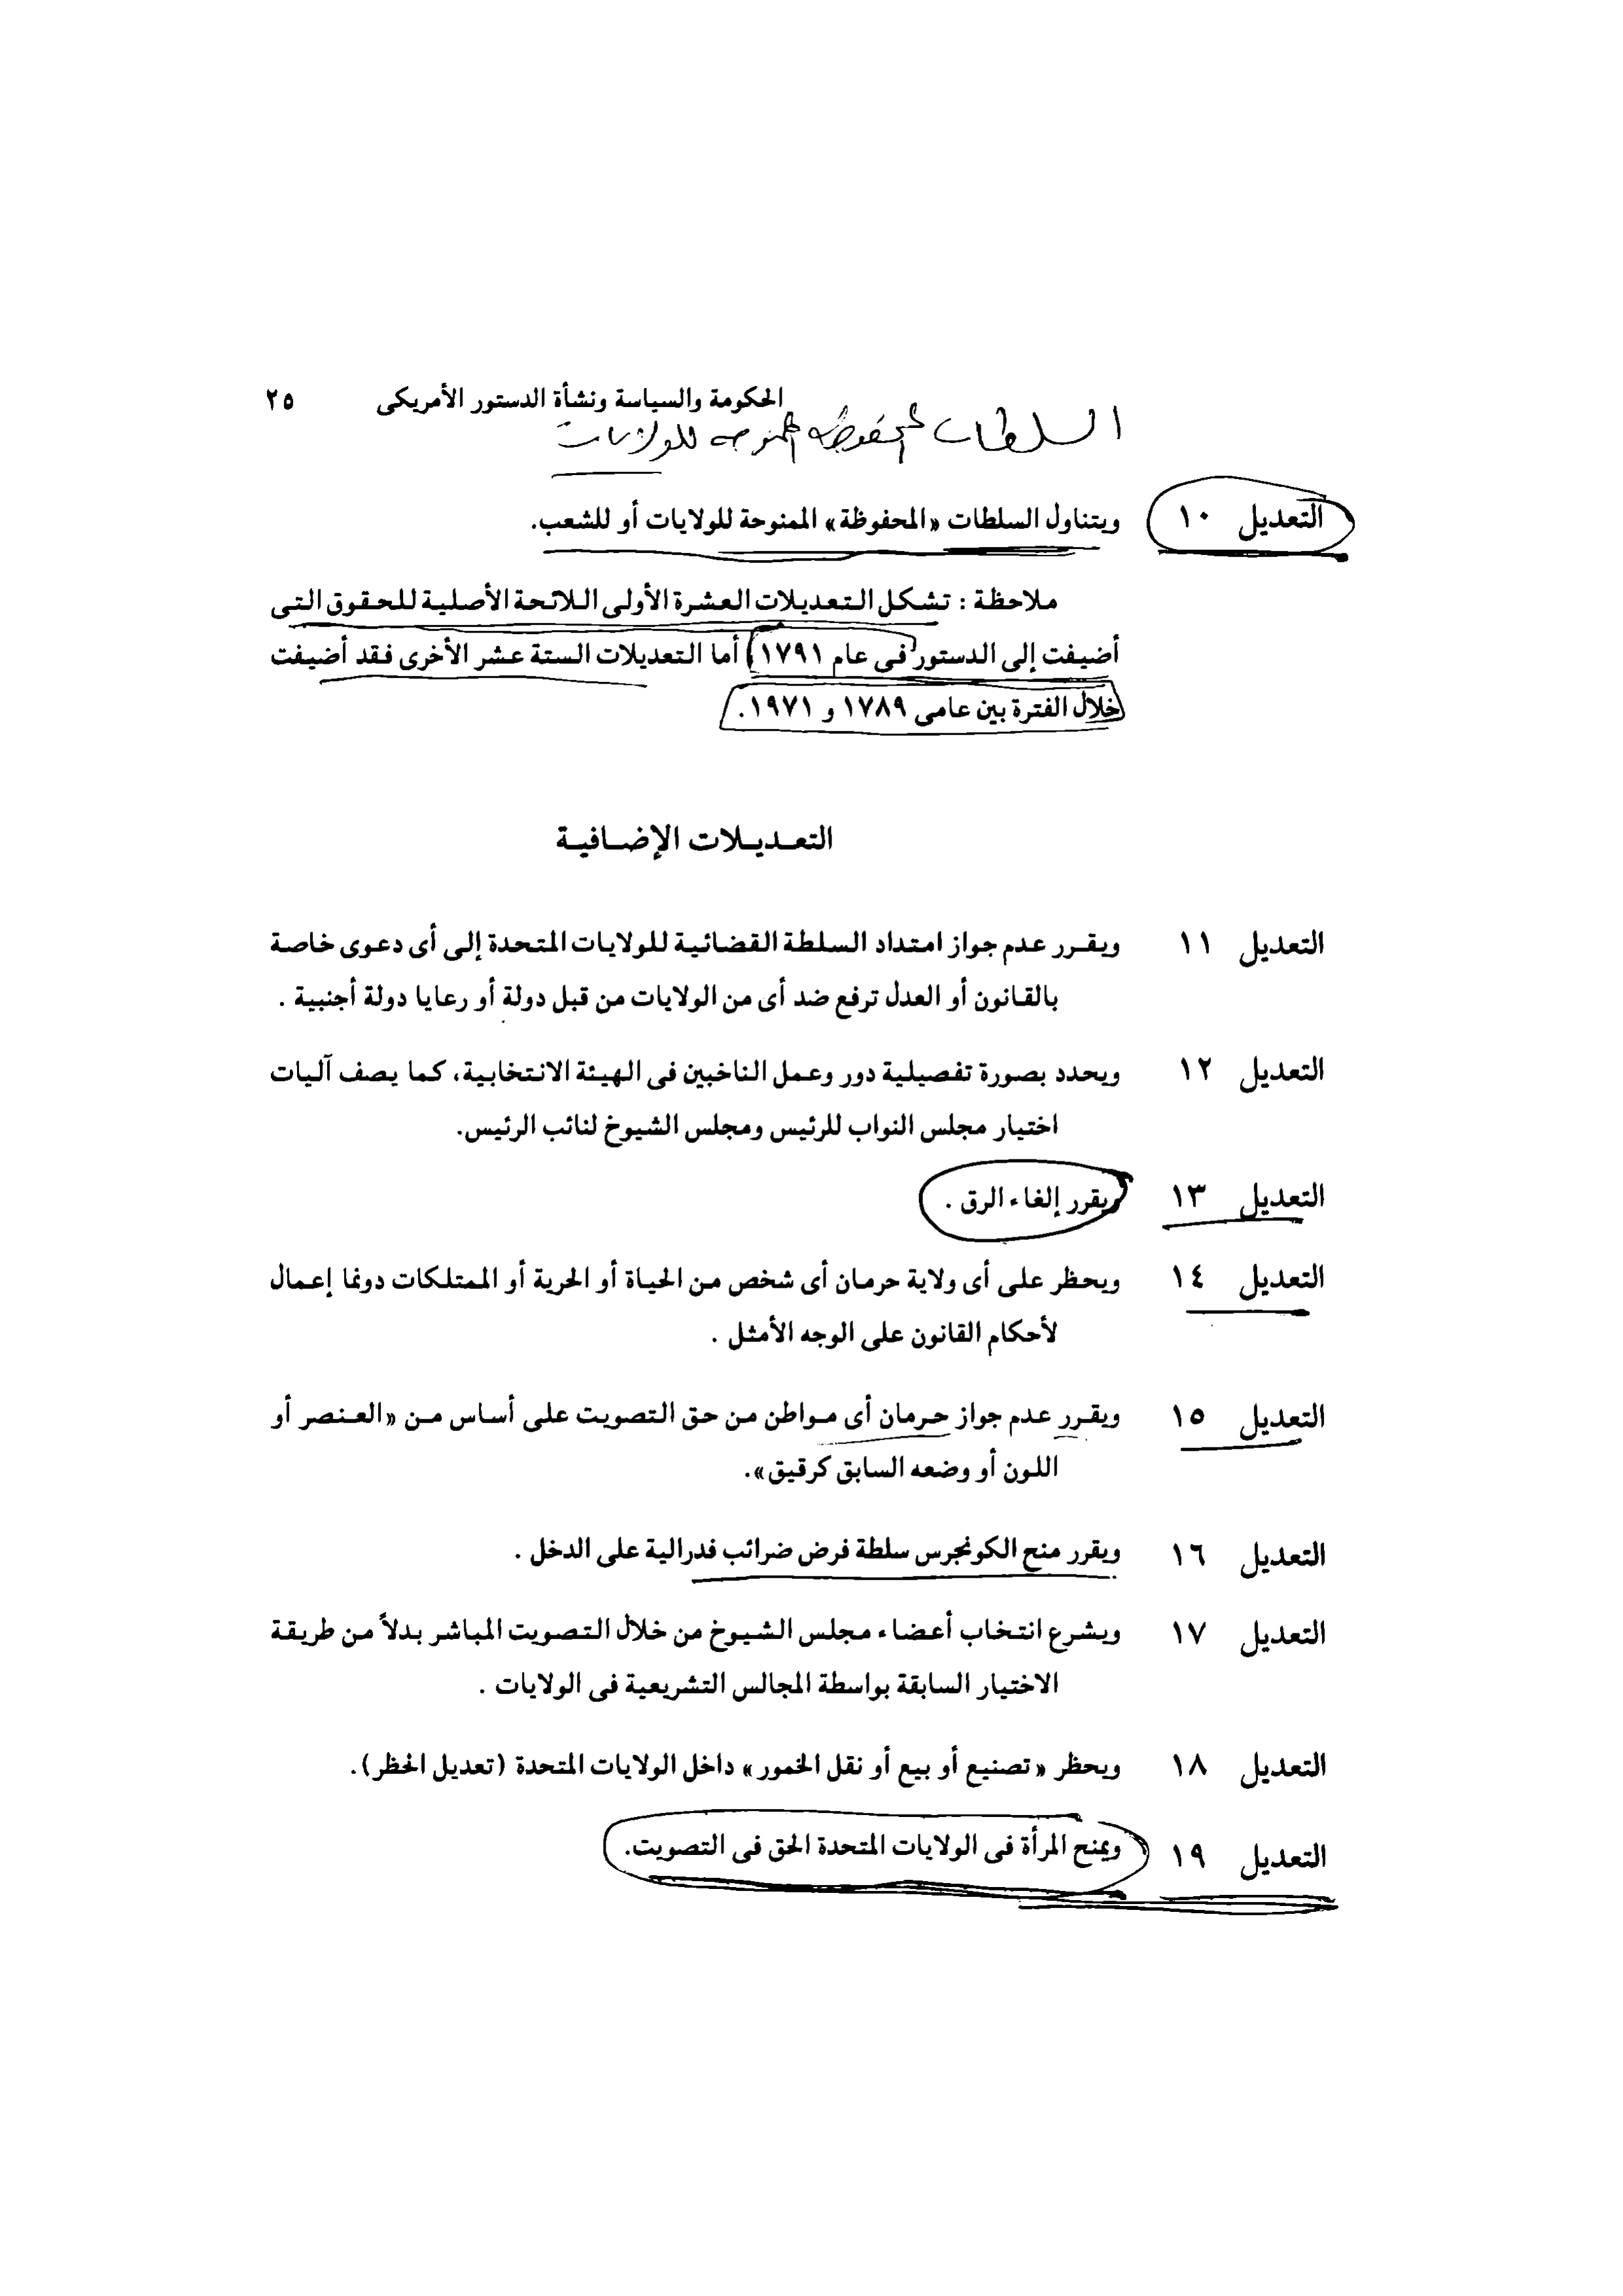 الحكومة والسياسة ونشأة الدستور الأمريكى ٢٥
السلطات المحفوظه الممنوحه للولايات
التعديل ١٠ ويتناول السلطات «المحفوظة» الممنوحة للولايات أو للشعب.
ملاحظة : تشكل التعديلات العشرة الأولى اللائحة الأصلية للحقوق التى
أضيفت إلى الدستور فى عام ١٧٩١) أما التعديلات الستة عشر الأخرى فقد أضيفت
خلال الفترة بين عامى ١٧٨٩ و ١٩٧١.
التعديلات الإضافية
التعديل ١١ ويقرر عدم جواز امتداد السلطة القضائية للولايات المتحدة إلى أى دعوى خاصة
بالقانون أو العدل ترفع ضد أى من الولايات من قبل دولة أو رعايا دولة أجنبية .
التعديل ١٢ ويحدد بصورة تفصيلية دور وعمل الناخبين فى الهيئة الانتخابية، كما يصف آليات
اختيار مجلس النواب للرئيس ومجلس الشيوخ لنائب الرئيس.
التعديل ١٣ ويقرر إلغاء الرق .
التعديل ١٤ ويحظر على أى ولاية حرمان أى شخص من الحياة أو الحرية أو الممتلكات دونما إعمال
لأحكام القانون على الوجه الأمثل .
التعديل ١٥ ويقرر عدم جواز حرمان أى مواطن من حق التصويت على أساس من «العنصر أو
اللون أو وضعه السابق كرقيق».
التعديل ١٦ ويقرر منح الكونجرس سلطة فرض ضرائب فدرالية على الدخل .
التعديل ١٧ ويشرع انتخاب أعضاء مجلس الشيوخ من خلال التصويت المباشر بدلاً من طريقة
الاختيار السابقة بواسطة المجالس التشريعية فى الولايات .
التعديل ١٨ ويحظر «تصنيع أو بيع أو نقل الخمور» داخل الولايات المتحدة (تعديل الحظر).
التعديل ١٩ ويمنح المرأة فى الولايات المتحدة الحق فى التصويت.